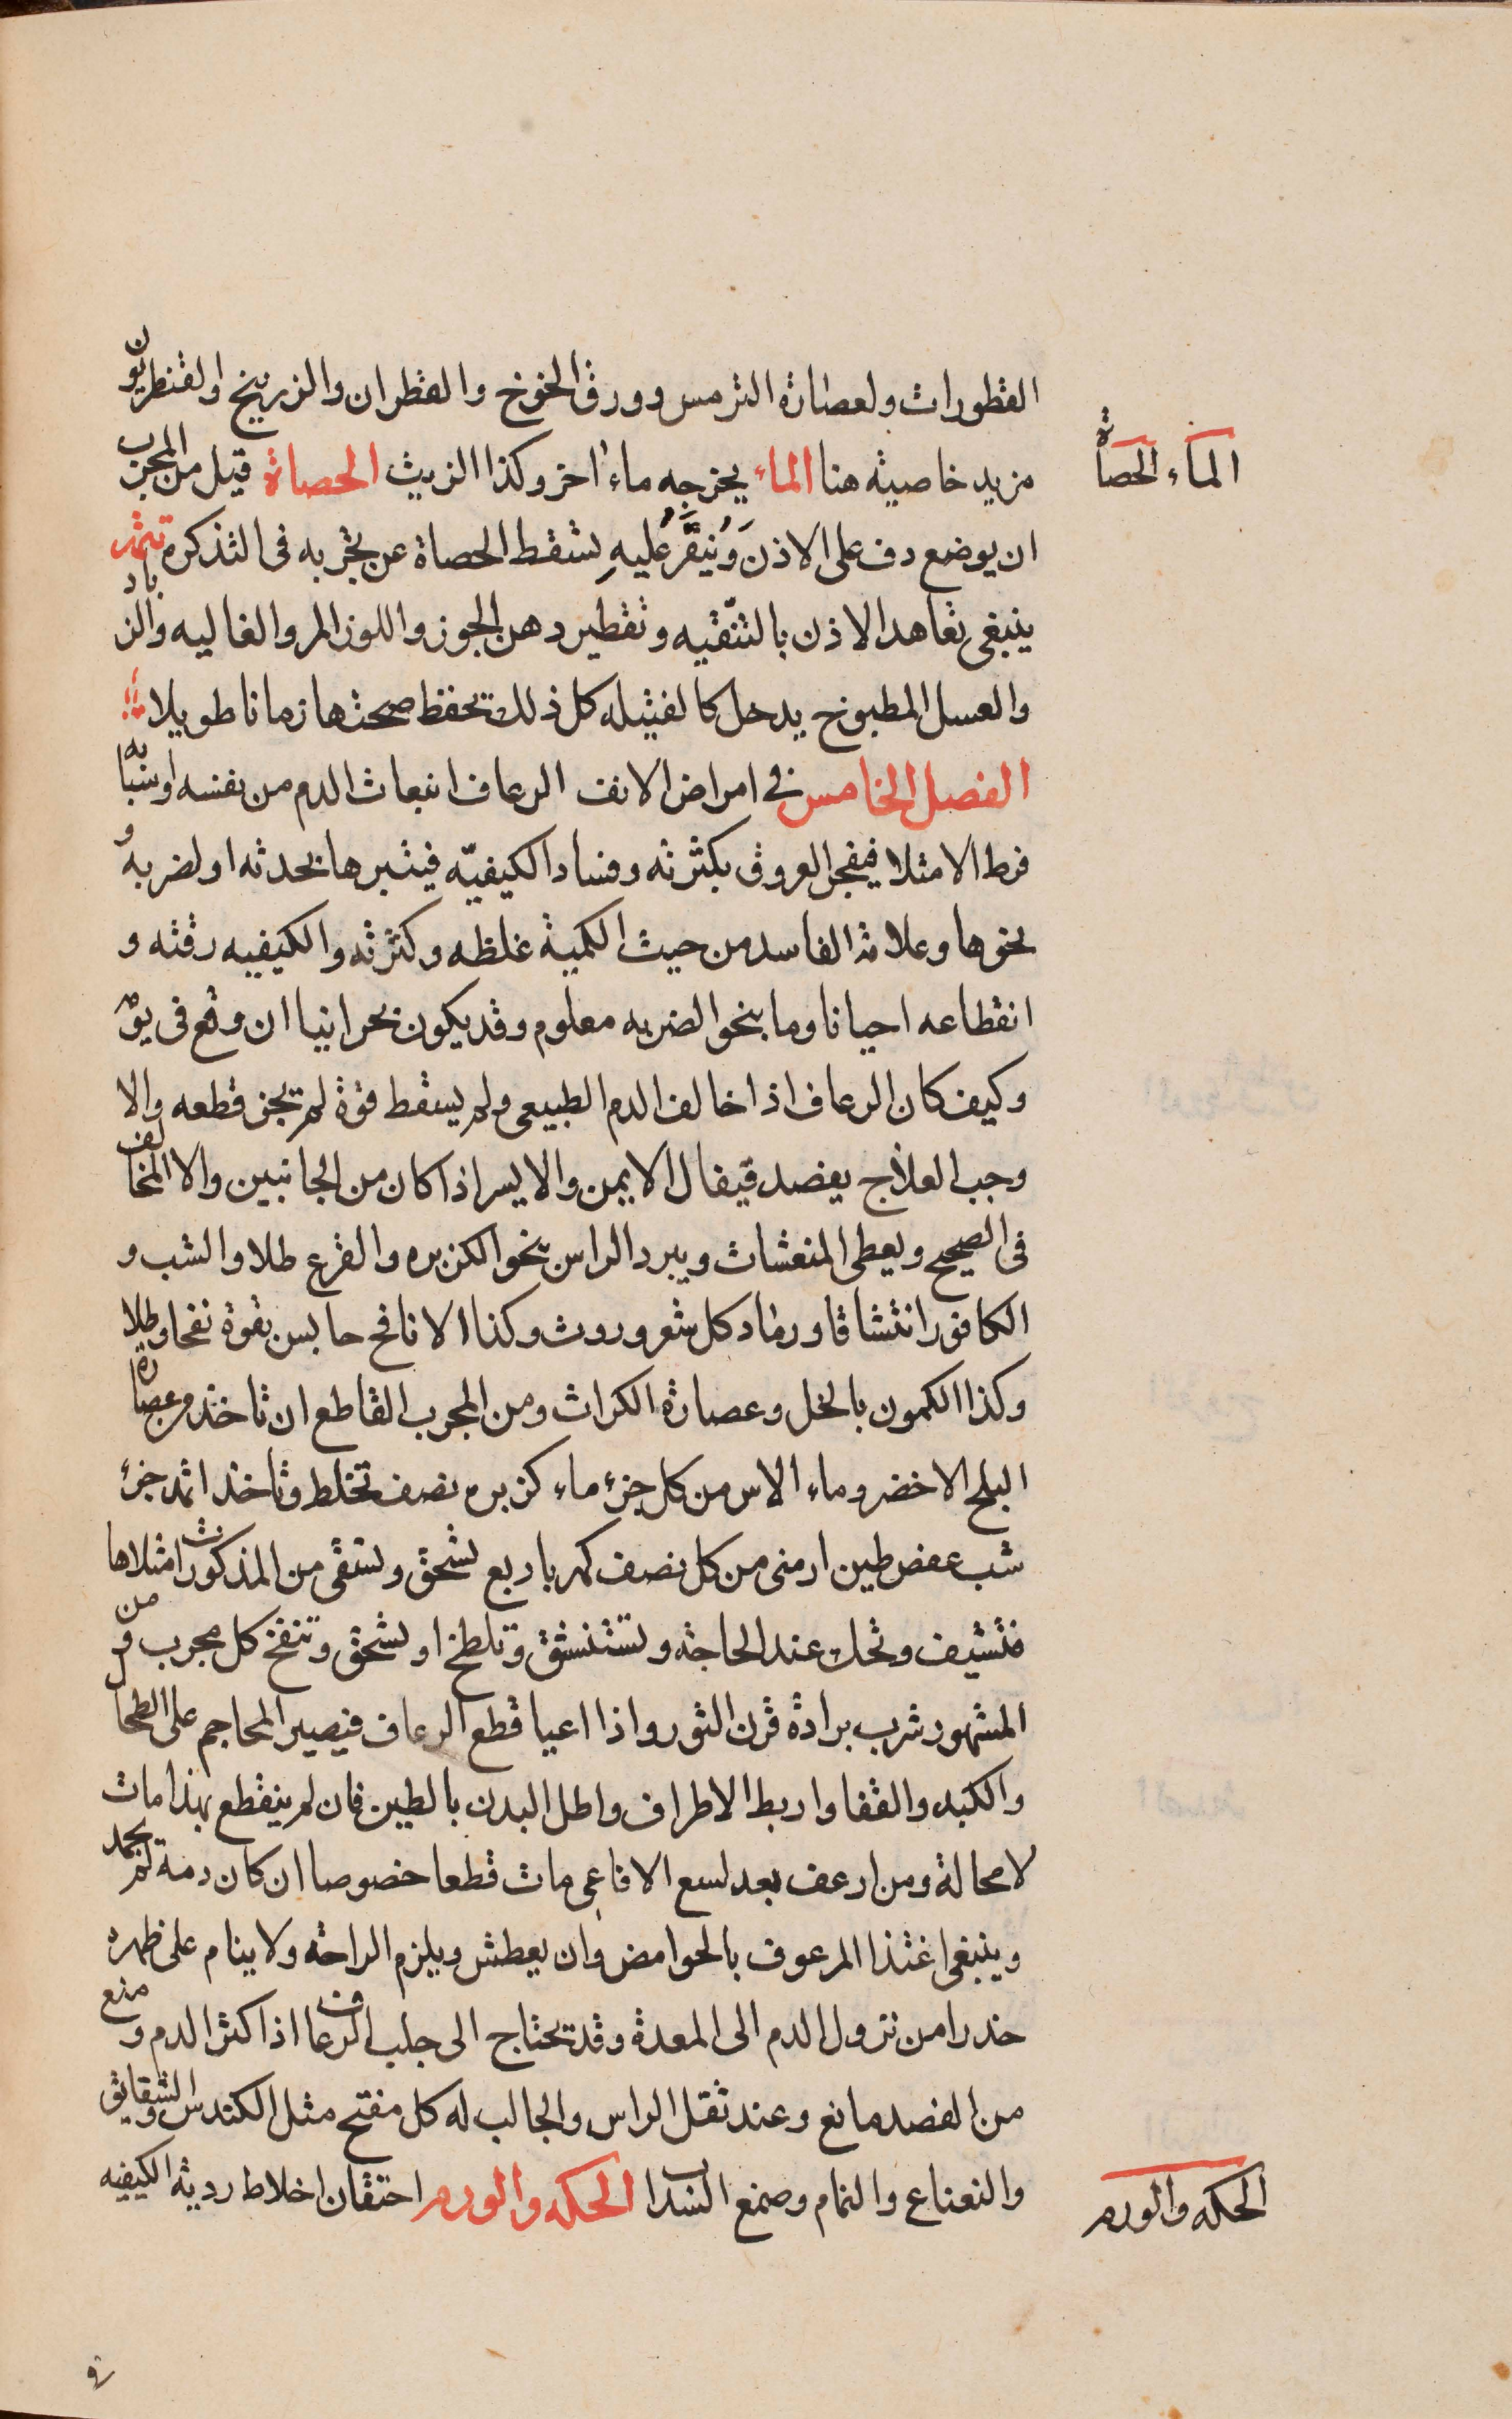 القطورات ولعصارة الترمس وورق الخوخ والقطران والزرنيخ اولقنطريون
مزيد خاصيته هنا الماء يخرجه ماء اخر وكذا الزيت الحصاة قيل من المجرب
الماء الحصاة
ان يوضع دف على الاذن وينقر عليه لسقط الحصاة عن تجربه فى التذكره تتمه
ينبغى تعاهد الاذن بالتنقيه وتقطير دهن الجوز واللوز المر والغاليه والزباد
والعسل المطبوخ يدخل كالفتيله كل ذلك تحفظ صحتها زمانا طويلا
الفصل الخامس فى امراض الانف الرعاف انبعاث الدم من نفسه او سببه اما
فرط الامتلا فيفجر العروق بكثرته وفساد الكيفيّه فيثيرها بحدته او لضربه و
نحوها وعلامة الفاسد من حيث الكمية غلظه وكثرته والكيفيه رقته و
انقطاعه احيانا وما بنحو الضربه معلوم وقد يكون بحرانيا ان وقع فى يومه
وكيف كان الرعاف اذا خالف الدم الطبيعى ولم يسقط قوة لم يجز قطعه والا
وجب العلاج يفصد قيفال الايمن والايسر اذا كان من الجانبين والا المخالف
فى الصحيح ويعطى المنعشات ويبرد الراس بنحو الكزبره والقرع طلا والشب و
الكافور انتشاقا ورماد كل شعر وروث وكذا الانافح حابس بقوة نفخا وطلا
وكذا الكمون بالخل وعصارة الكراث ومن المجرب القاطع ان تاخذ من عصارة
البلح الاخضر وماء الاس من كل جزء ماء كزبره نصف تخلط وتاخذ اثمد جزء
شب عفص طين ارمنى من كل نصف كهربا ربع تسحق وتسقى من المذكورات امثلاها
فتشيف وتحك عند الحاجة وتستنشق وتلطخ او تسحق وتنفخ كل مجرب ومن
المشهور شرب برادة قرن الثور واذا اعيا قطع الرعاف فيصير المحاجم على الطحال
والكبد والقفا واربط الاطراف واطل البدن بالطين فان لم ينقطع بهذا مات
لا محالة ومن ارعف بعد لسع الافاعى مات قطعا خصوصا ان كان دمة لم يجمد
وينبغى اغتذا المرعوف بالحوامض وان يعطش ويلزم الراحة ولا ينام على ظهره
حذرا من نزول الدم الى المعدة وقد تحتاج الى جلب الرعاف اذا كثر الدم ومنع
من الفصد مانع وعند ثقل الراس والجالب له كل مفتح مثل الكندس والشقايق
والنعناع والنمام وصمغ السداب الحكه والورم احتقان اخلاط ردية الكيفيه
الحكه والورم